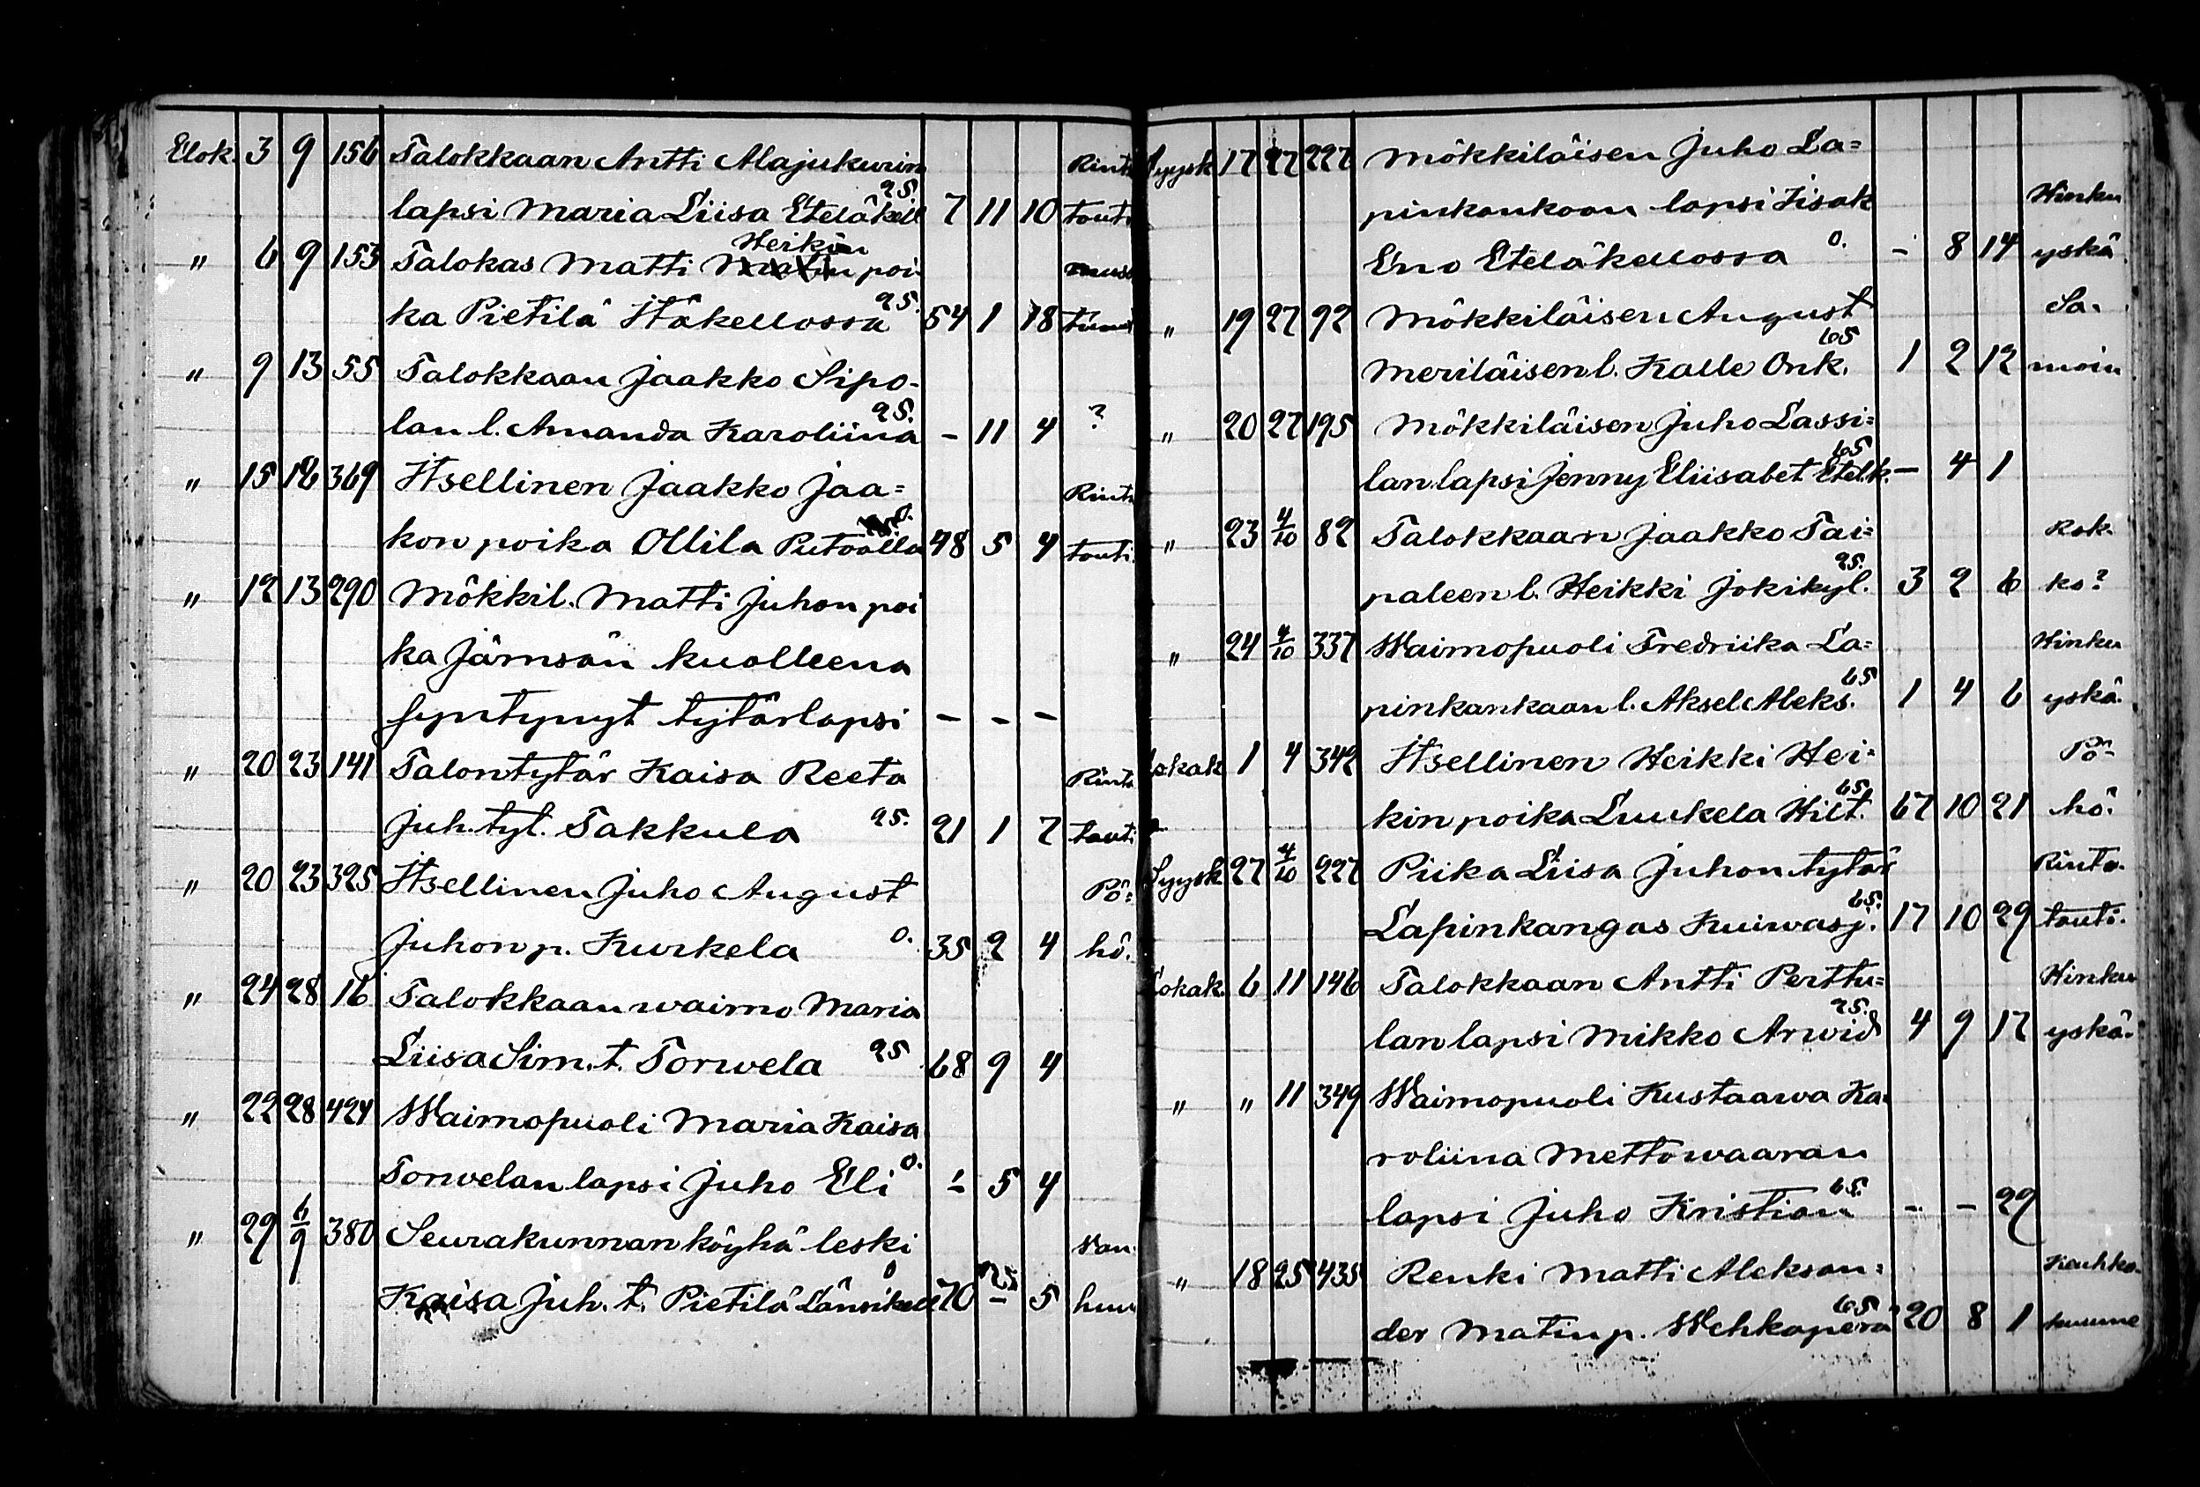 Elok. 3 9 156 Talokkaan Antti Alajukurin Rinta
lapsi Maria Liisa Eteläkell 25. 7 11 10 tauti
Heikin
" 6 9 153 Talokas Matti poi-
ka Pietilä Itäkellossa 25. 54 1 18
" 9 13 55 Talokkaan Jaakko Sipo-
lan l. Amanda Karoliina 25. - 11 4 ?
" 15 16 369 Itsellinen Jaakko Jaa= Rinta
kon poika Ollila Putaalla 48 5 4 tauti.
" 12 13 290 Mökkil. Matti Juhon poi
ka Jämsän kuolleena
syntynyt tytärlapsi - - -
" 20 23 141 Talontytär Kaisa Reeta Rinta
Juh. tyt. Takkula 25. 21 1 7 tauti
" 20 23 325 Itsellinen Juho August Pö=
Juhon p. Kurkela 0. 35 2 4 hö.
" 24 28 16 Talokkaan waimo Maria
Liisa Sim. t. Torwela 25 68 9 4
" 22 28 424 Waimopuoli Maria Kaisa
Torwelan lapsi Juho Eli 0. - 5 4
" 29 6/9 380 Seurakunnan köyhä leski Wan-
Kaisa Juh. t. Pietilä Länsikell 0 70 - 5 huu
Syysk 17 27 227 Mökkiläisen Juho La=
pinkankaan lapsi Iisak Hinku
Eno Eteläkellossa 0. - 8 14 yskä.
" 19 27 92 Mökkiläisen August Sa-
Meriläisen l. Kalle Onk. 65 1 2 12 moin
" 20 27 195 Mökkiläisen Juho Lassi=
lan lapsi Jenny Eliisabet Etel.k. 65 - 4 1
" 23 4/10 82 Talokkaan Jaakko Tai= Rok-
paleen l. Heikki Jokikyl. 25. 3 2 6 ko?
" 24 4/10 337 Waimopuoli Fredriika La= Hinku
pinkankaan l. Aksel Aleks. 65 1 4 6 yskä.
Lokak 1 4 342 Itsellinen Heikki Hei- Pö-
kin poika Luukela Hilt. 65. 67 10 21 hö.
Syysk 27 4/10 227 Piika Liisa Juhon tytär Rinta-
Lapinkangas Kuiwasj. 65. 17 10 29 tauti.
Lokak. 6 11 146 Talokkaan Antti Perttu= Hinku
lan lapsi Mikko Arwid 25. 4 9 17 yskä.
" " 11 349 Waimopuoli Kustaawa Ka-
roliina Mettowaaran
lapsi Juho Kristian 65. - - 29
" 18 25 435 Renki Matti Aleksan= Keuhko-
der Matin p. Wehkaperä 65 20 8 1